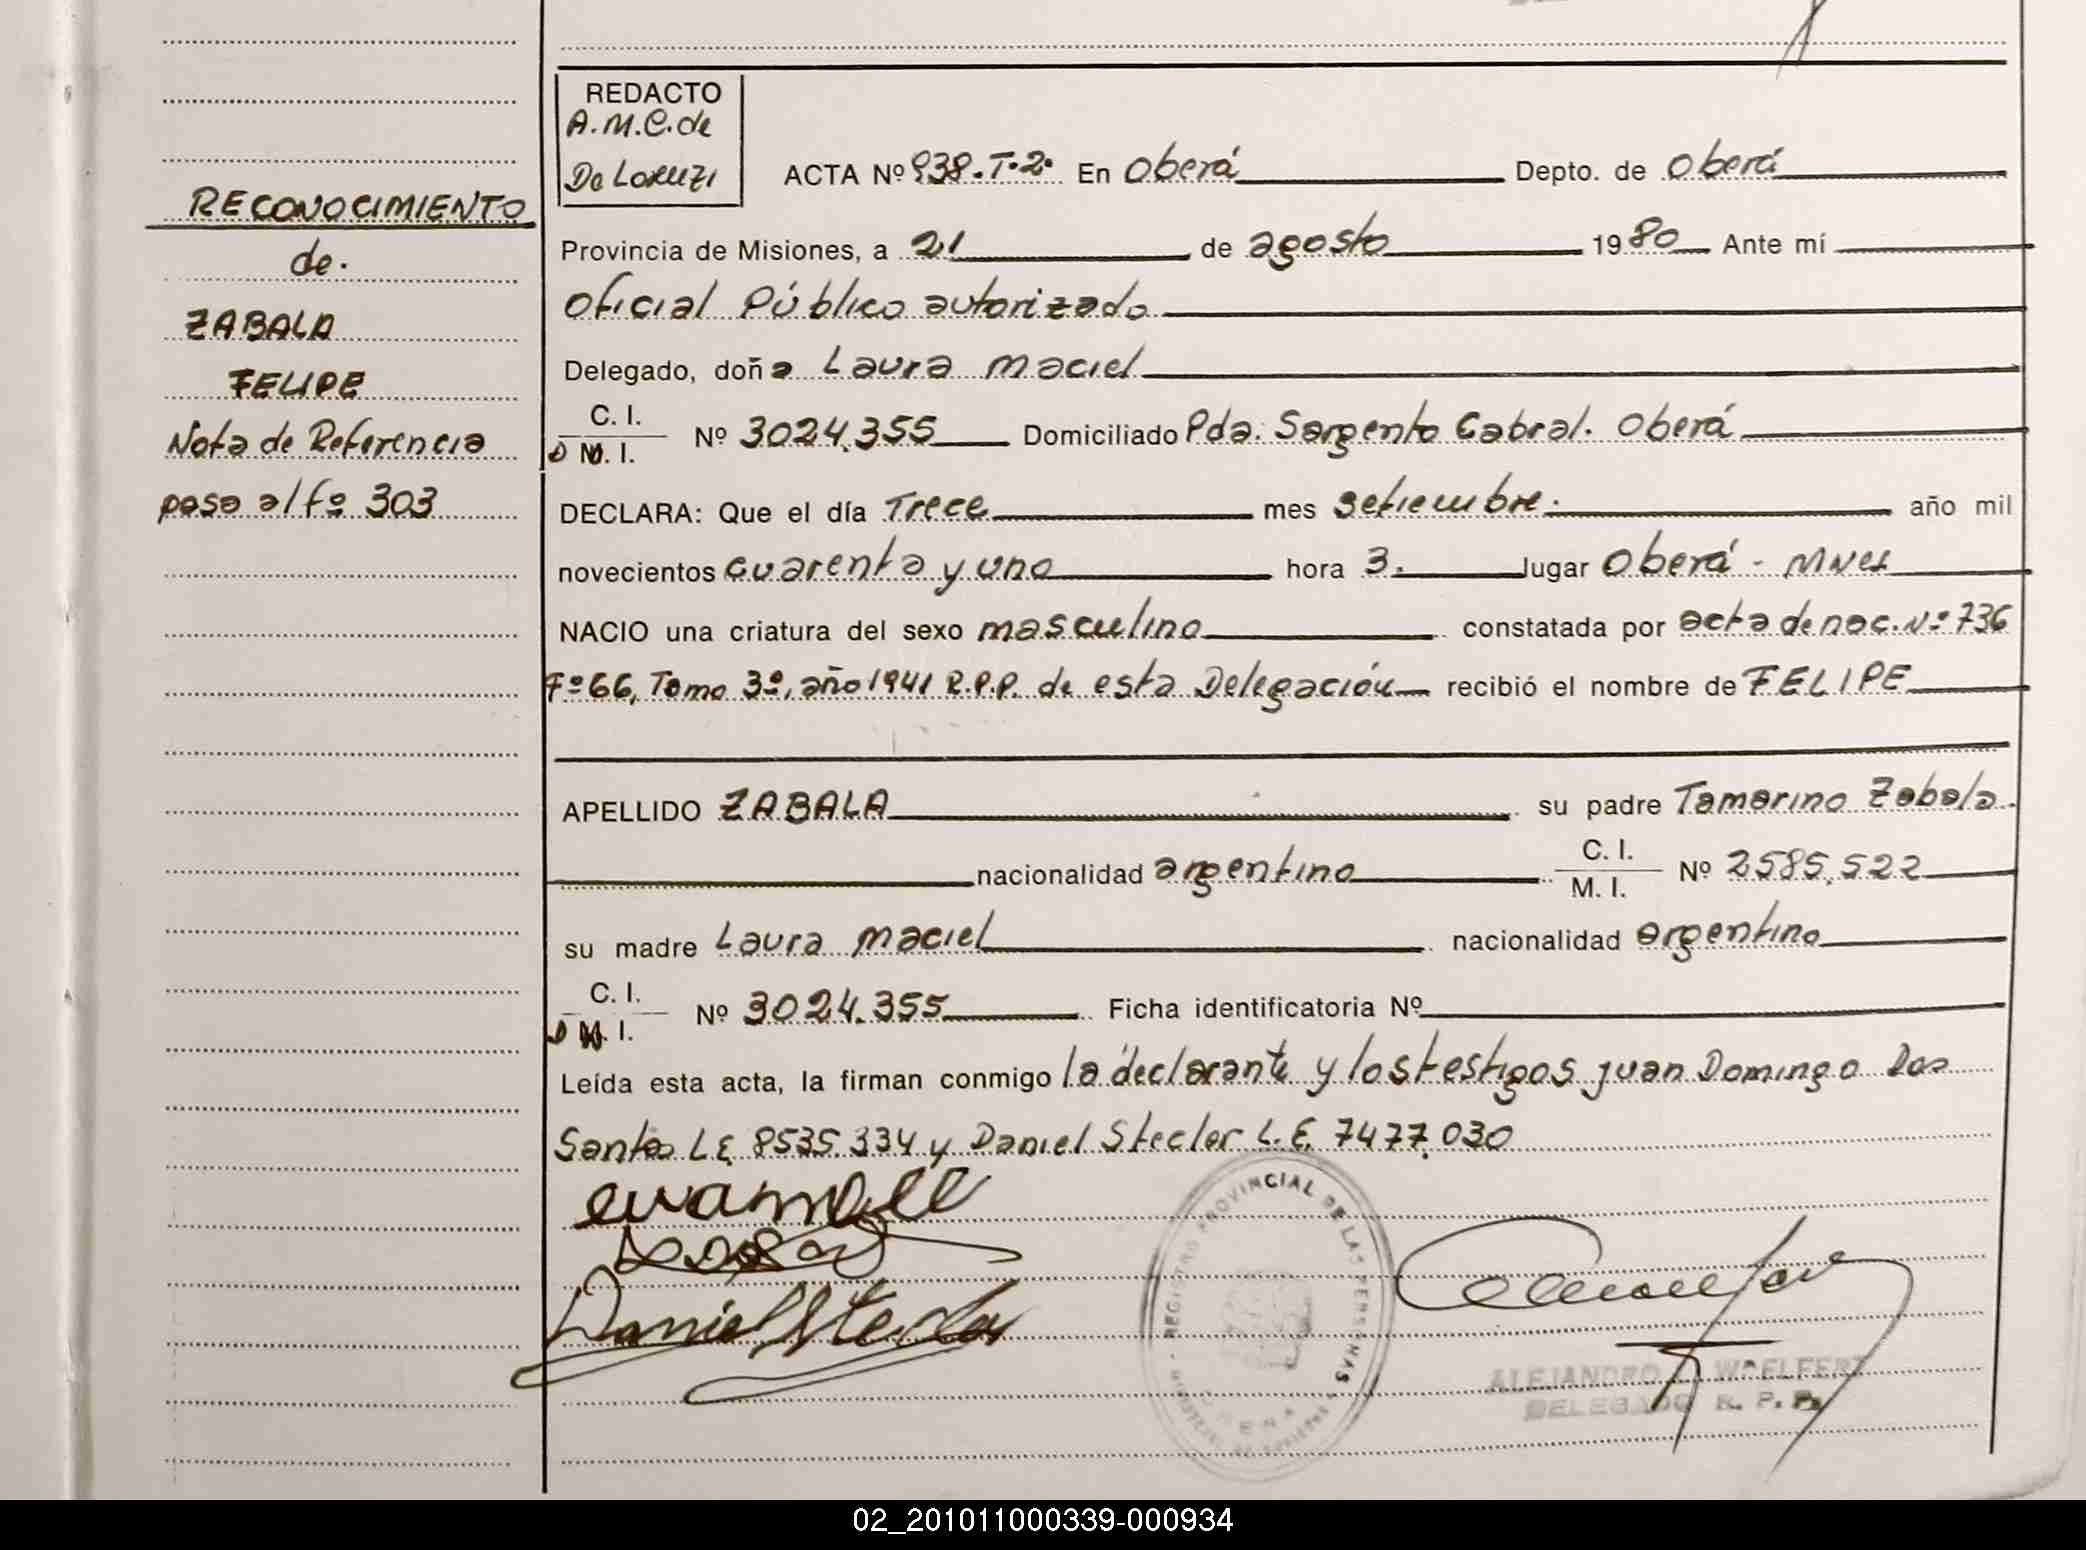 RECONOCIMIENTO
de.
ZABALA
FELIPE
Nota de Referencia
pasa al fº 303
REDACTO
A.M.C. de
De Lorenzi
ACTA Nº 938.T.2º En Oberá Depto. de Oberá
Provincia de Misiones, a 21 de agosto 1980 Ante mí
Oficial Público autorizado
Delegado, doña Laura Maciel
C. I.
D M. I. Nº 3024.355 Domiciliado Pda. Sargento Cabral. Oberá
DECLARA: Que el día Trece mes setiembre. año mil
novecientos cuarenta y uno hora 3. lugar Oberá - Mnes
NACIO una criatura del sexo masculino constatada por acta de nac. Nº 736
Fº 66, Tomo 3º, año 1941 R.P.P. de esta Delegación recibió el nombre de FELIPE
APELLIDO ZABALA su padre Tamarino Zabala.
nacionalidad argentino C. I.
M. I. Nº 2585.522
su madre Laura Maciel nacionalidad argentina
C. I.
D M. I. Nº 3024.355 Ficha identificatoria Nº
Leída esta acta, la firman conmigo la declarante y los testigos Juan Domingo Dos
Santos L.E. 8535.334 y Daniel Stecler L.E. 7477.030
Daniel Stecler
REGISTRO PROVINCIAL DE LAS PERSONAS
ALEJANDRO WAELFERT
DELEGADO R. P. P.
02_201011000339-000934